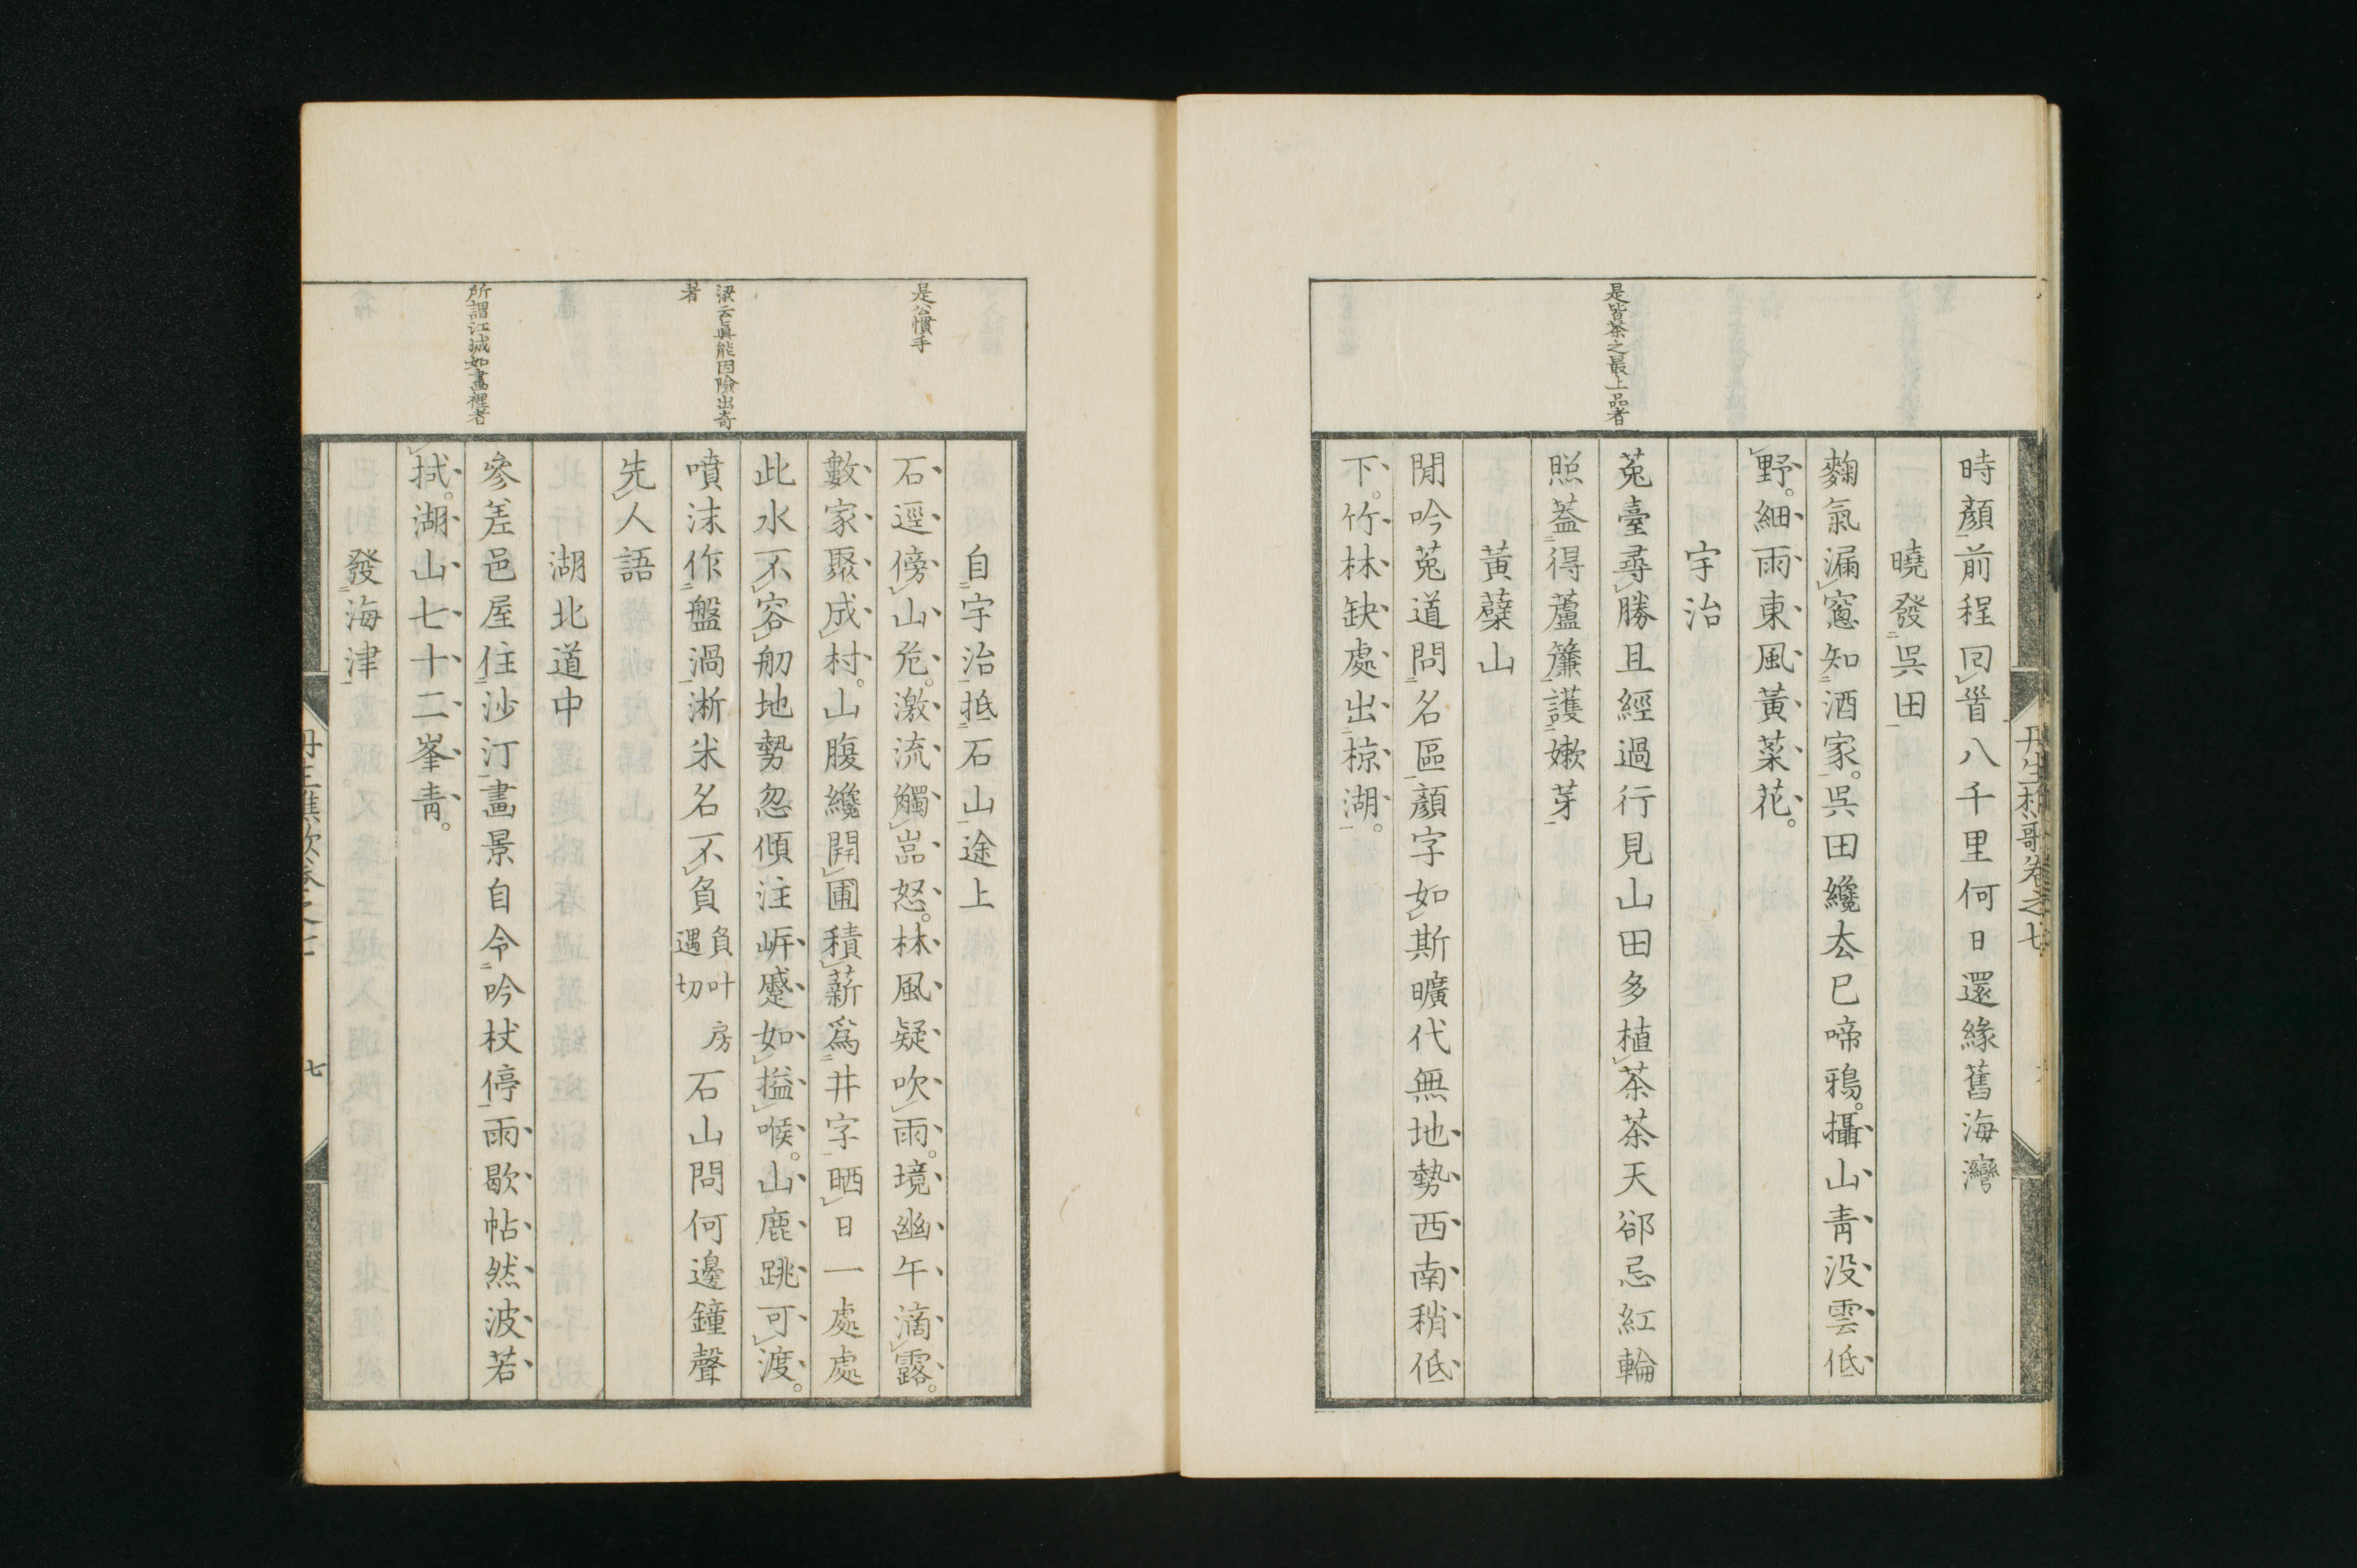 是皆茶之最上品者
時顏前程回首八千里何日還緣舊海灣
曉發吳田
麴氣漏窻知酒家吳田纔厺已啼鴉攝山靑没雲低
野細雨東風黃菜花
宇治
菟臺尋勝且經過行見山田多植茶茶天郤忌紅輪
照葢得蘆簾護嫰芽
黃蘗山
閒吟菟道問名區顏字如斯曠代無地勢西南稍低
下竹林缺處出椋湖
丹生樵歌卷之七
是公慣手
梁云眞能因險出奇
者
所謂江城如畫裡者
自宇治抵石山途上
石逕傍山危激流觸嵓怒林風疑吹雨境幽午滴露
數家聚成村山腹纔開圃積薪爲井字晒日一處處
此水不容舠地勢忽傾注㟁蹙如搤喉山鹿跳可渡
噴沫作盤渦淅米名不負負叶房遇切石山問何邊鐘聲
先人語
湖北道中
參差邑屋住沙汀畵景自令吟杖停雨歇帖然波若
拭湖山七十二峯靑
發海津
丹生樵歌卷之七
七